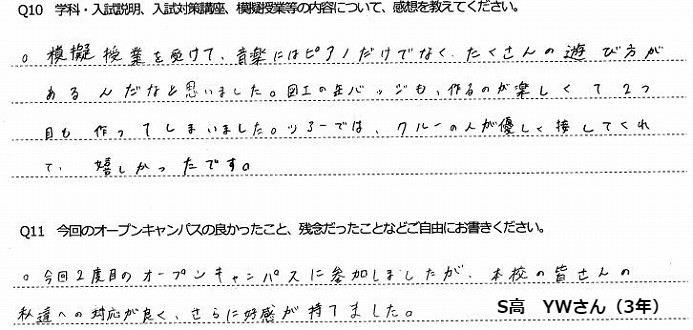 Q10　学科・入試説明、入試対策講座、模擬授業等の内容について、感想を教えてください。
。模擬授業を受けて、音楽にはピアノだけでなく、たくさんの遊び方が
あるんだなと思いました。図工の缶バッジも、作るのが楽しくて2つ
目も作ってしまいました。ツアーでは、クルーの人が優しく接してくれ
て、嬉しかったです。
Q11　今回のオープンキャンパスの良かったこと、残念だったことなどご自由にお書きください。
。今回2度目のオープンキャンパスに参加しましたが、本校の皆さんの
私達への対応が良く、さらに好感が持てました。
S高　YWさん（3年）